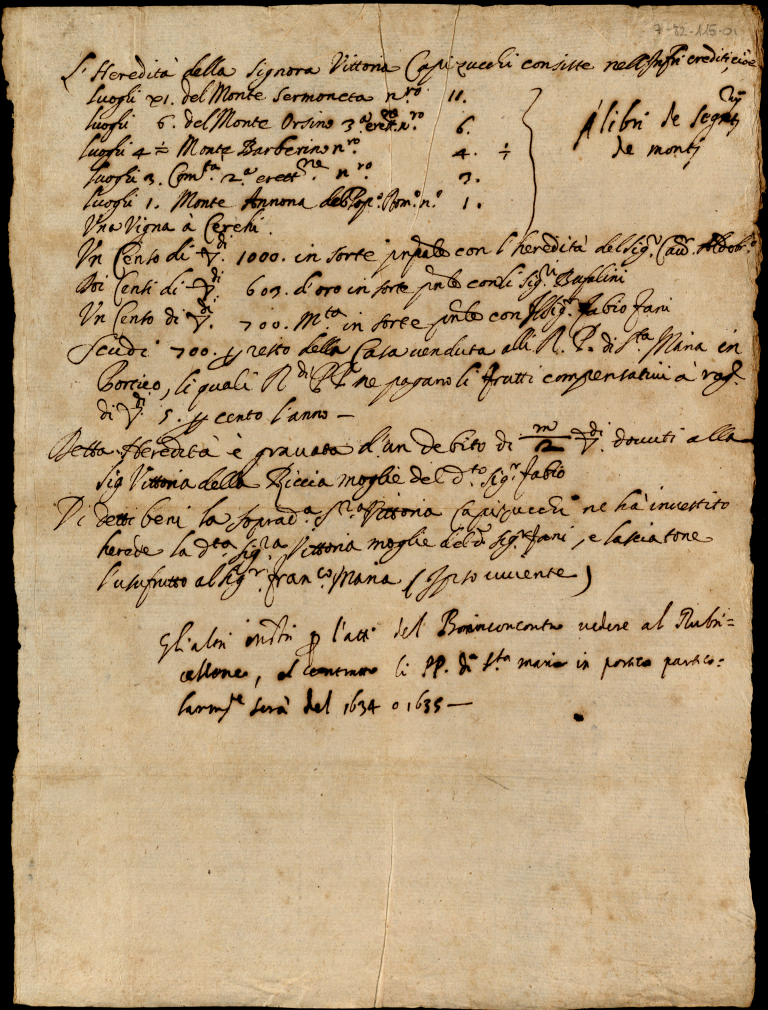 7-82-115-01
L'Heredità della Signora Vittoria Capizucchi consiste nell'infri crediti, cioè
luoghi xi. del Monte Sermoneta n.ro 11.
luoghi 6. del Monte Orsino 3.a erett. n.ro 6.
luoghi 4 ÷ Monte Barberino n.ro 4. ÷
luoghi 3. Com.ta 2.a erett.ne n.ro 3.
luoghi 1. Monte Annona del Pop.o Rom.o n.o 1.
A libri de Segret.rij
de monti
Una Vigna à Cerchi.
Un Censo di ∇.di 1000. in sorte pnpale con l'heredità del Sig.r Cau.r Aldob.o
Doi Censi di ∇.di 609. d'oro in sorte pnle con li Sig.ri Bufalini
Un Censo di ∇.di 700. m.ta in sorte pnle con Sig.r Fabio Fani
Scudi 700. p resto della Casa venduta alli R. P. di S.ta Maria in
Portico, li quali R.di PP. ne pagano li frutti compensativi à rag.
di ∇.di 5. p cento l'anno —
Detta Heredità è gravata d'un debito di m/2 ∇.di dovuti alla
Sig Vittoria della Riccia moglie del d.to Sig.r Fabio
Di detti beni la soprad.a S.ra Vittoria Capizucchi ne ha investito
herede la d.ta Sig.ra Vittoria moglie del d. Sig.r Fani, e lasciatone
l'usufrutto al Sig.r Fran.co Maria
Gli altri p l'atti del Bonincontro vedere al Rubri=
cellone, li PP. di S.ta maria in portico partico=
larm.te serà del 1634 o 1635 —